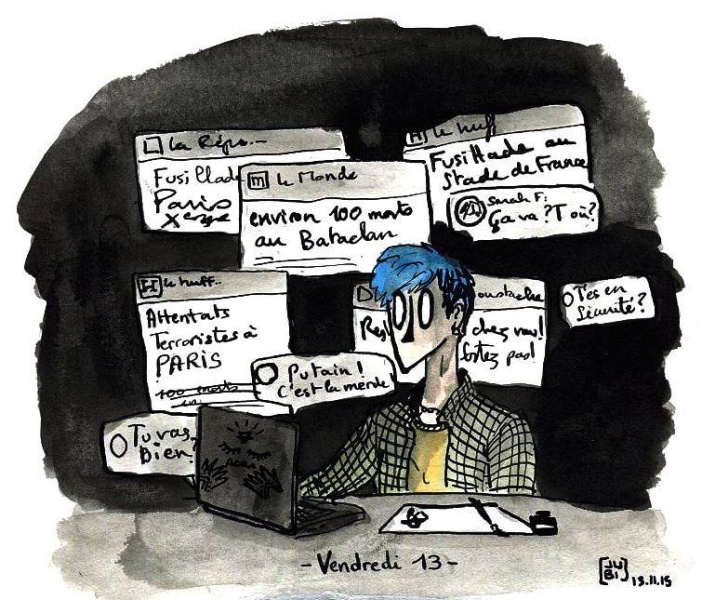 La Répu...
Fusillade
Paris
Xe
m Le Monde
environ 100 morts
au Bataclan
H le huff
Fusillade au
Stade de France
Sarah F:
Ça va? T où?
H le huff..
Attentats
Terroristes à
PARIS
100 morts
Putain !
C'est la merde
Tu vas
Bien?
D
oustache
Res
chez vous!
Sortez pas!
T'es en
Sécurité?
- Vendredi 13 -
JU
BI
13.11.15